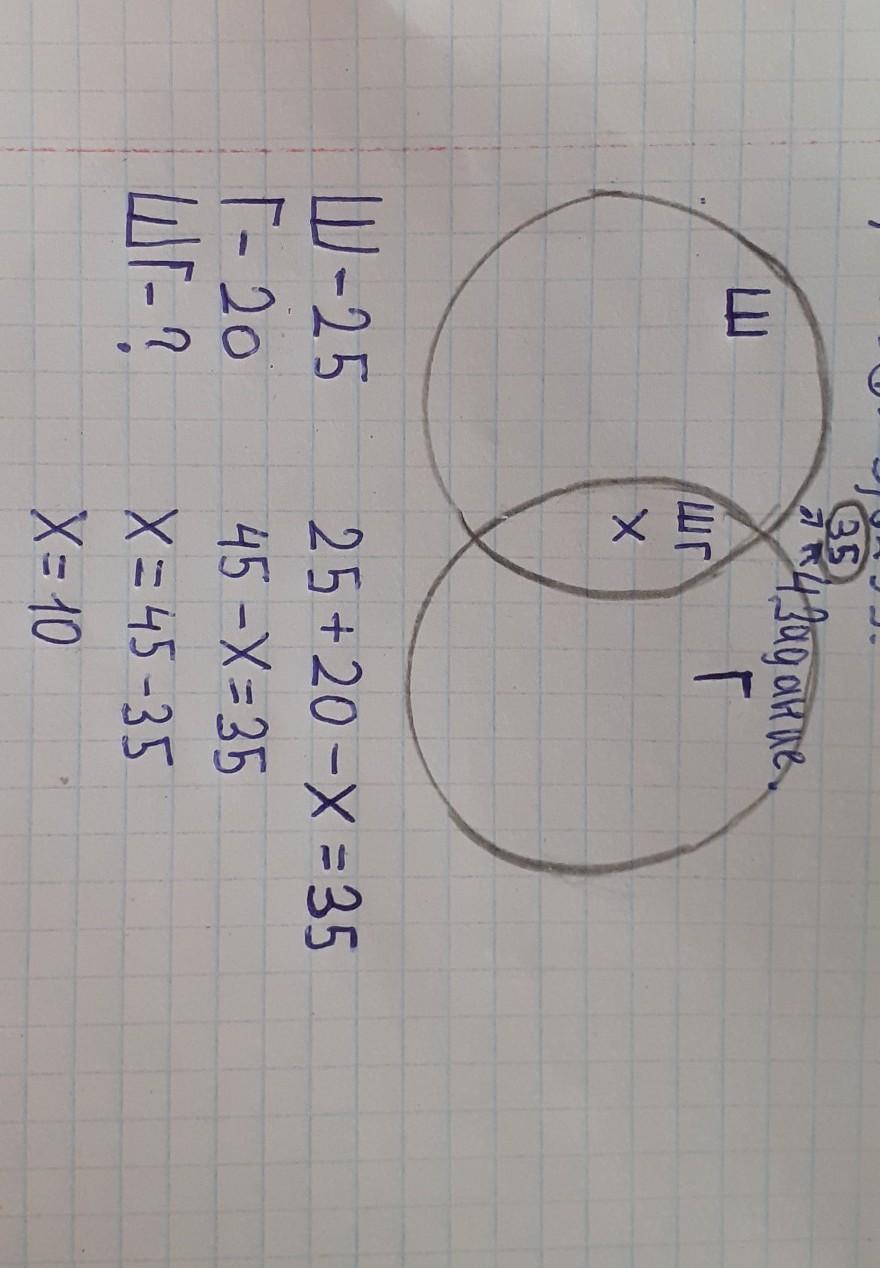 35
4 Задание.
Ш
Г
ШГ
X
Ш - 25
Г - 20
ШГ - ?
25 + 20 - X = 35
45 - X = 35
X = 45 - 35
X = 10